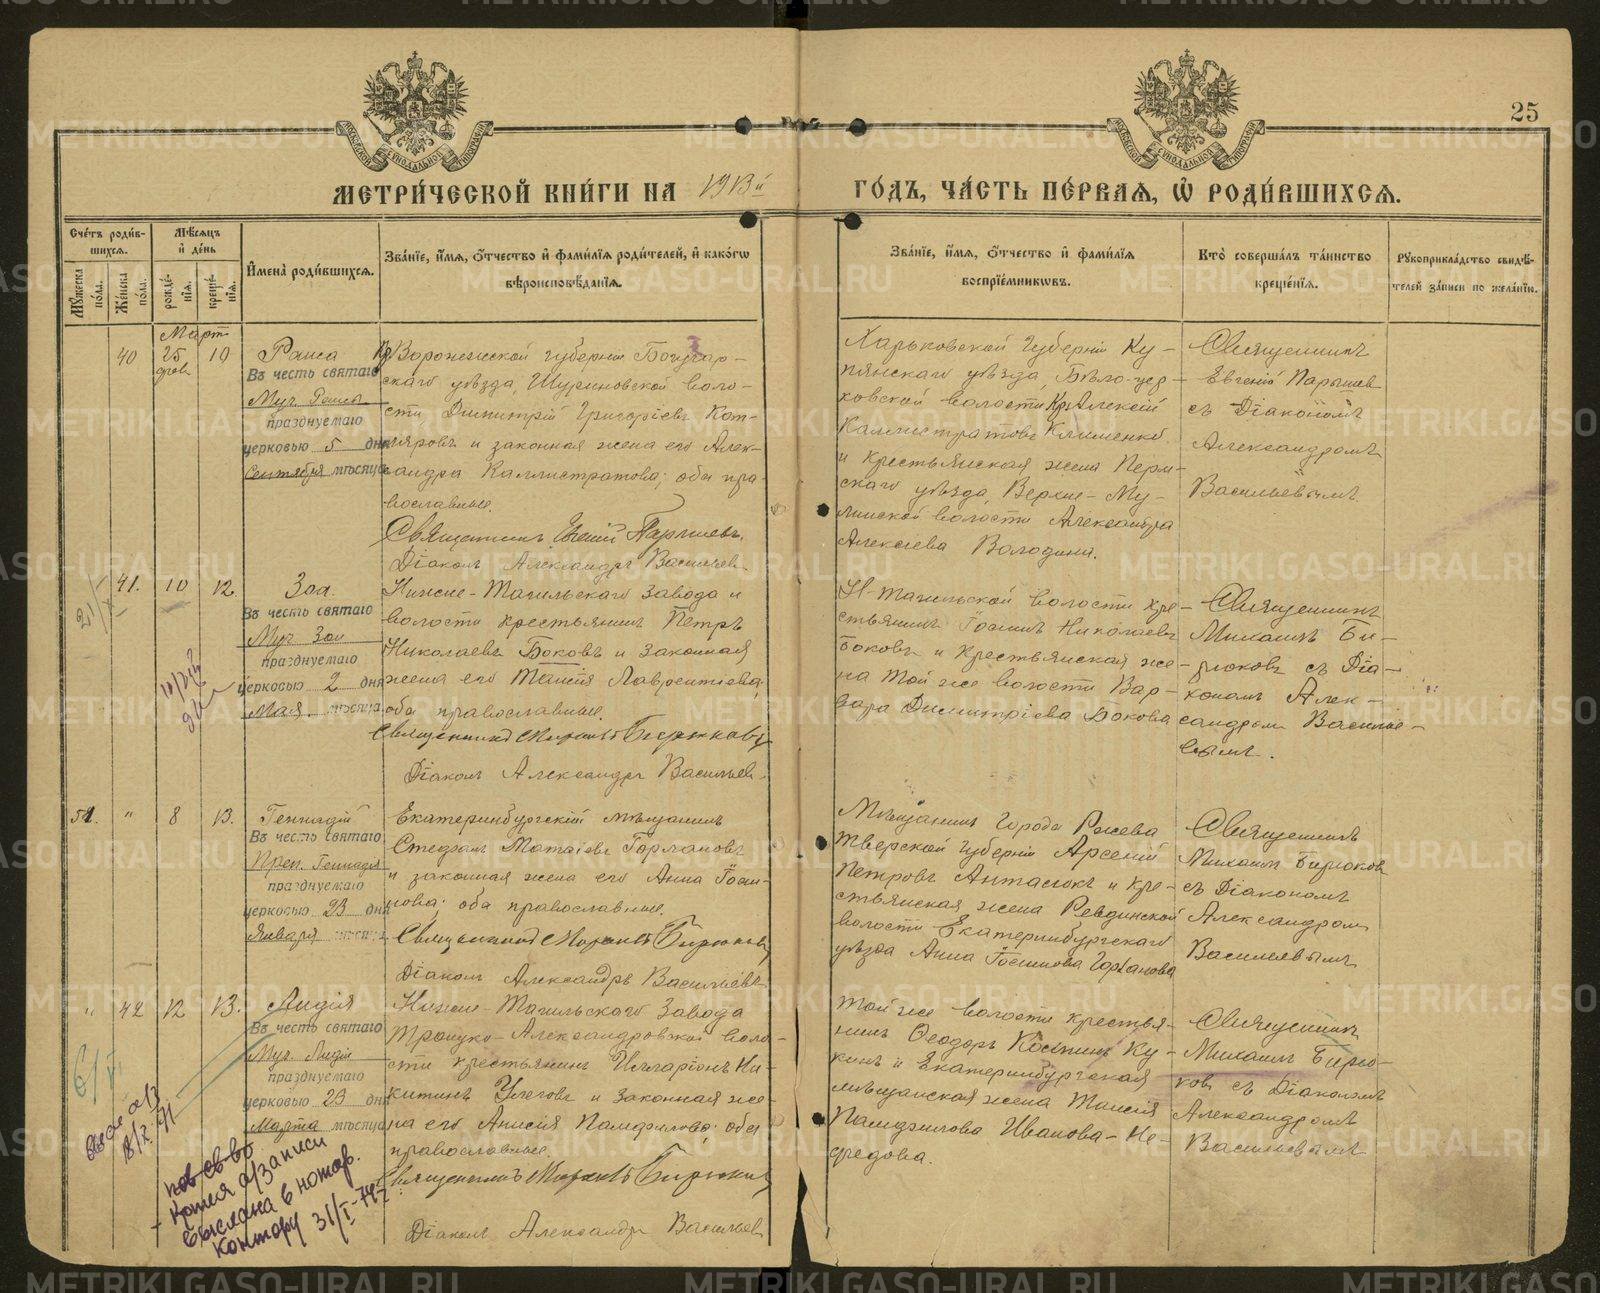 25
МОСКОВСКОЙ СѴНОДАЛЬНОЙ ТИПОГРАФІИ
МОСКОВСКОЙ СѴНОДАЛЬНОЙ ТИПОГРАФІИ
МЕТРИ́ЧЕСКОЙ КНИ́ГИ НА 1913й
ГО́ДЪ, ЧА́СТЬ ПЕ́РВАЯ, Ѡ҆ РОДИ́ВШИХСЯ.
Сче́тъ роди́в-
шихся.
Мꙋ́жеска по́ла.
Же́нска по́ла.
Мѣ́сяцъ
и҆ де́нь
рожде́-
нїя.
креще́-
нїя.
И҆мена̀ роди́вшихся.
Зва́нїе, и҆́мя, ѻ҆́тчество и҆ фами́лїя роди́телей, и҆ како́гѡ
вѣроисповѣ́данїя.
Зва́нїе, и҆́мя, ѻ҆́тчество и҆ фами́лїя
воспрїе́мникѡвъ.
Кто̀ соверша́лъ та́инство
креще́нїя.
Рꙋкоприкла́дство свидѣ́-
телей за́писи по жела́нїю.
Мартъ
40 25 10 Раиса
февр
Въ честь святаго
Муч. Раисы
празднуемаго
церковью 5 дня
Сентября мѣсяца
Кр. Воронежской губерніи Богучар-
скаго уѣзда, Шуриновской воло-
сти, Димитрій Григоріевъ Кот-
ляровъ и законная жена его Алек-
сандра Каллистратова; оба пра-
вославные.
Священникъ Евгеній Парышевъ
Діаконъ Александръ Васильевъ
Харьковской губерніи Ку-
пянскаго уѣзда, Бѣло-цер-
ковской волости Кр. Алексій
Каллистратовъ Клименко
и крестьянская жена Перм-
скаго уѣзда, Верхне-Му-
линской волости Александра
Алексѣева Володина.
Священникъ
Евгеній Парышев
съ Діакономъ
Александромъ
Васильевымъ
41. 10 12. Зоя.
Въ честь святаго
Муч Зои
празднуемаго
церковью 2 дня
Мая мѣсяца
Нижне-Тагильскаго Завода и
волости крестьянинъ Петръ
Николаевъ Боковъ и законная
жена его Таисія Лаврентіева;
оба православные.
Священникъ Михаилъ Бирюковъ
Діаконъ Александръ Васильевъ
Н-Тагильской волости кре-
стьянинъ Іоаннъ Николаевъ
Боковъ и крестьянская же-
на той же волости Вар-
вара Димитріева Бокова
Священникъ
Михаилъ Би-
рюковъ съ Діа-
кономъ Алек-
сандромъ Василье-
вымъ.
51. " 8 13. Геннадій
Въ честь святаго
Преп. Геннадія
празднуемаго
церковью 23 дня
Января мѣсяца
Екатеринбургскій мѣщанинъ
Стефанъ Матвіевъ Гормановъ
и законная жена его Анна Іоан-
нова; оба православные.
Священникъ Михаилъ Бирюковъ
Діаконъ Александръ Васильевъ
Мѣщанинъ города Ржева
Тверской губерніи Арсеній
Петровъ Антасюкъ и кре-
стьянская жена Ревдинской
волости Екатеринбургскаго
уѣзда Анна Іоаннова Горланова
Священникъ
Михаилъ Бирюков
съ Діакономъ
Александром
Васильевымъ
" 42 12 13. Лидія
Въ честь святаго
Муч. Лидіи
празднуемаго
церковью 23 дня
Марта мѣсяца
Нижне-Тагильскаго Завода
Троицко-Александровской воло-
сти крестьянинъ Илларіонъ Ни-
китинъ Углеговъ и законная же-
на его Анисія Памфилова; оба
православные.
Священникъ Михаилъ Бирюковъ
Діаконъ Александръ Васильев
Той же волости крестья-
нинъ Ѳеодоръ Косминъ Ку-
кинъ и Екатеринбургская
мѣщанская жена Таисія
Памфилова Иванова-Не-
федова.
Священникъ
Михаилъ Бирю-
ковъ съ Діакономъ
Александромъ
Васильевымъ
21/X
6/VI
18/X 71
пов св-во
- Копия а/записи
выслана в нотар.
контору 31/I-74г
METRIKI.GASO-URAL.RU